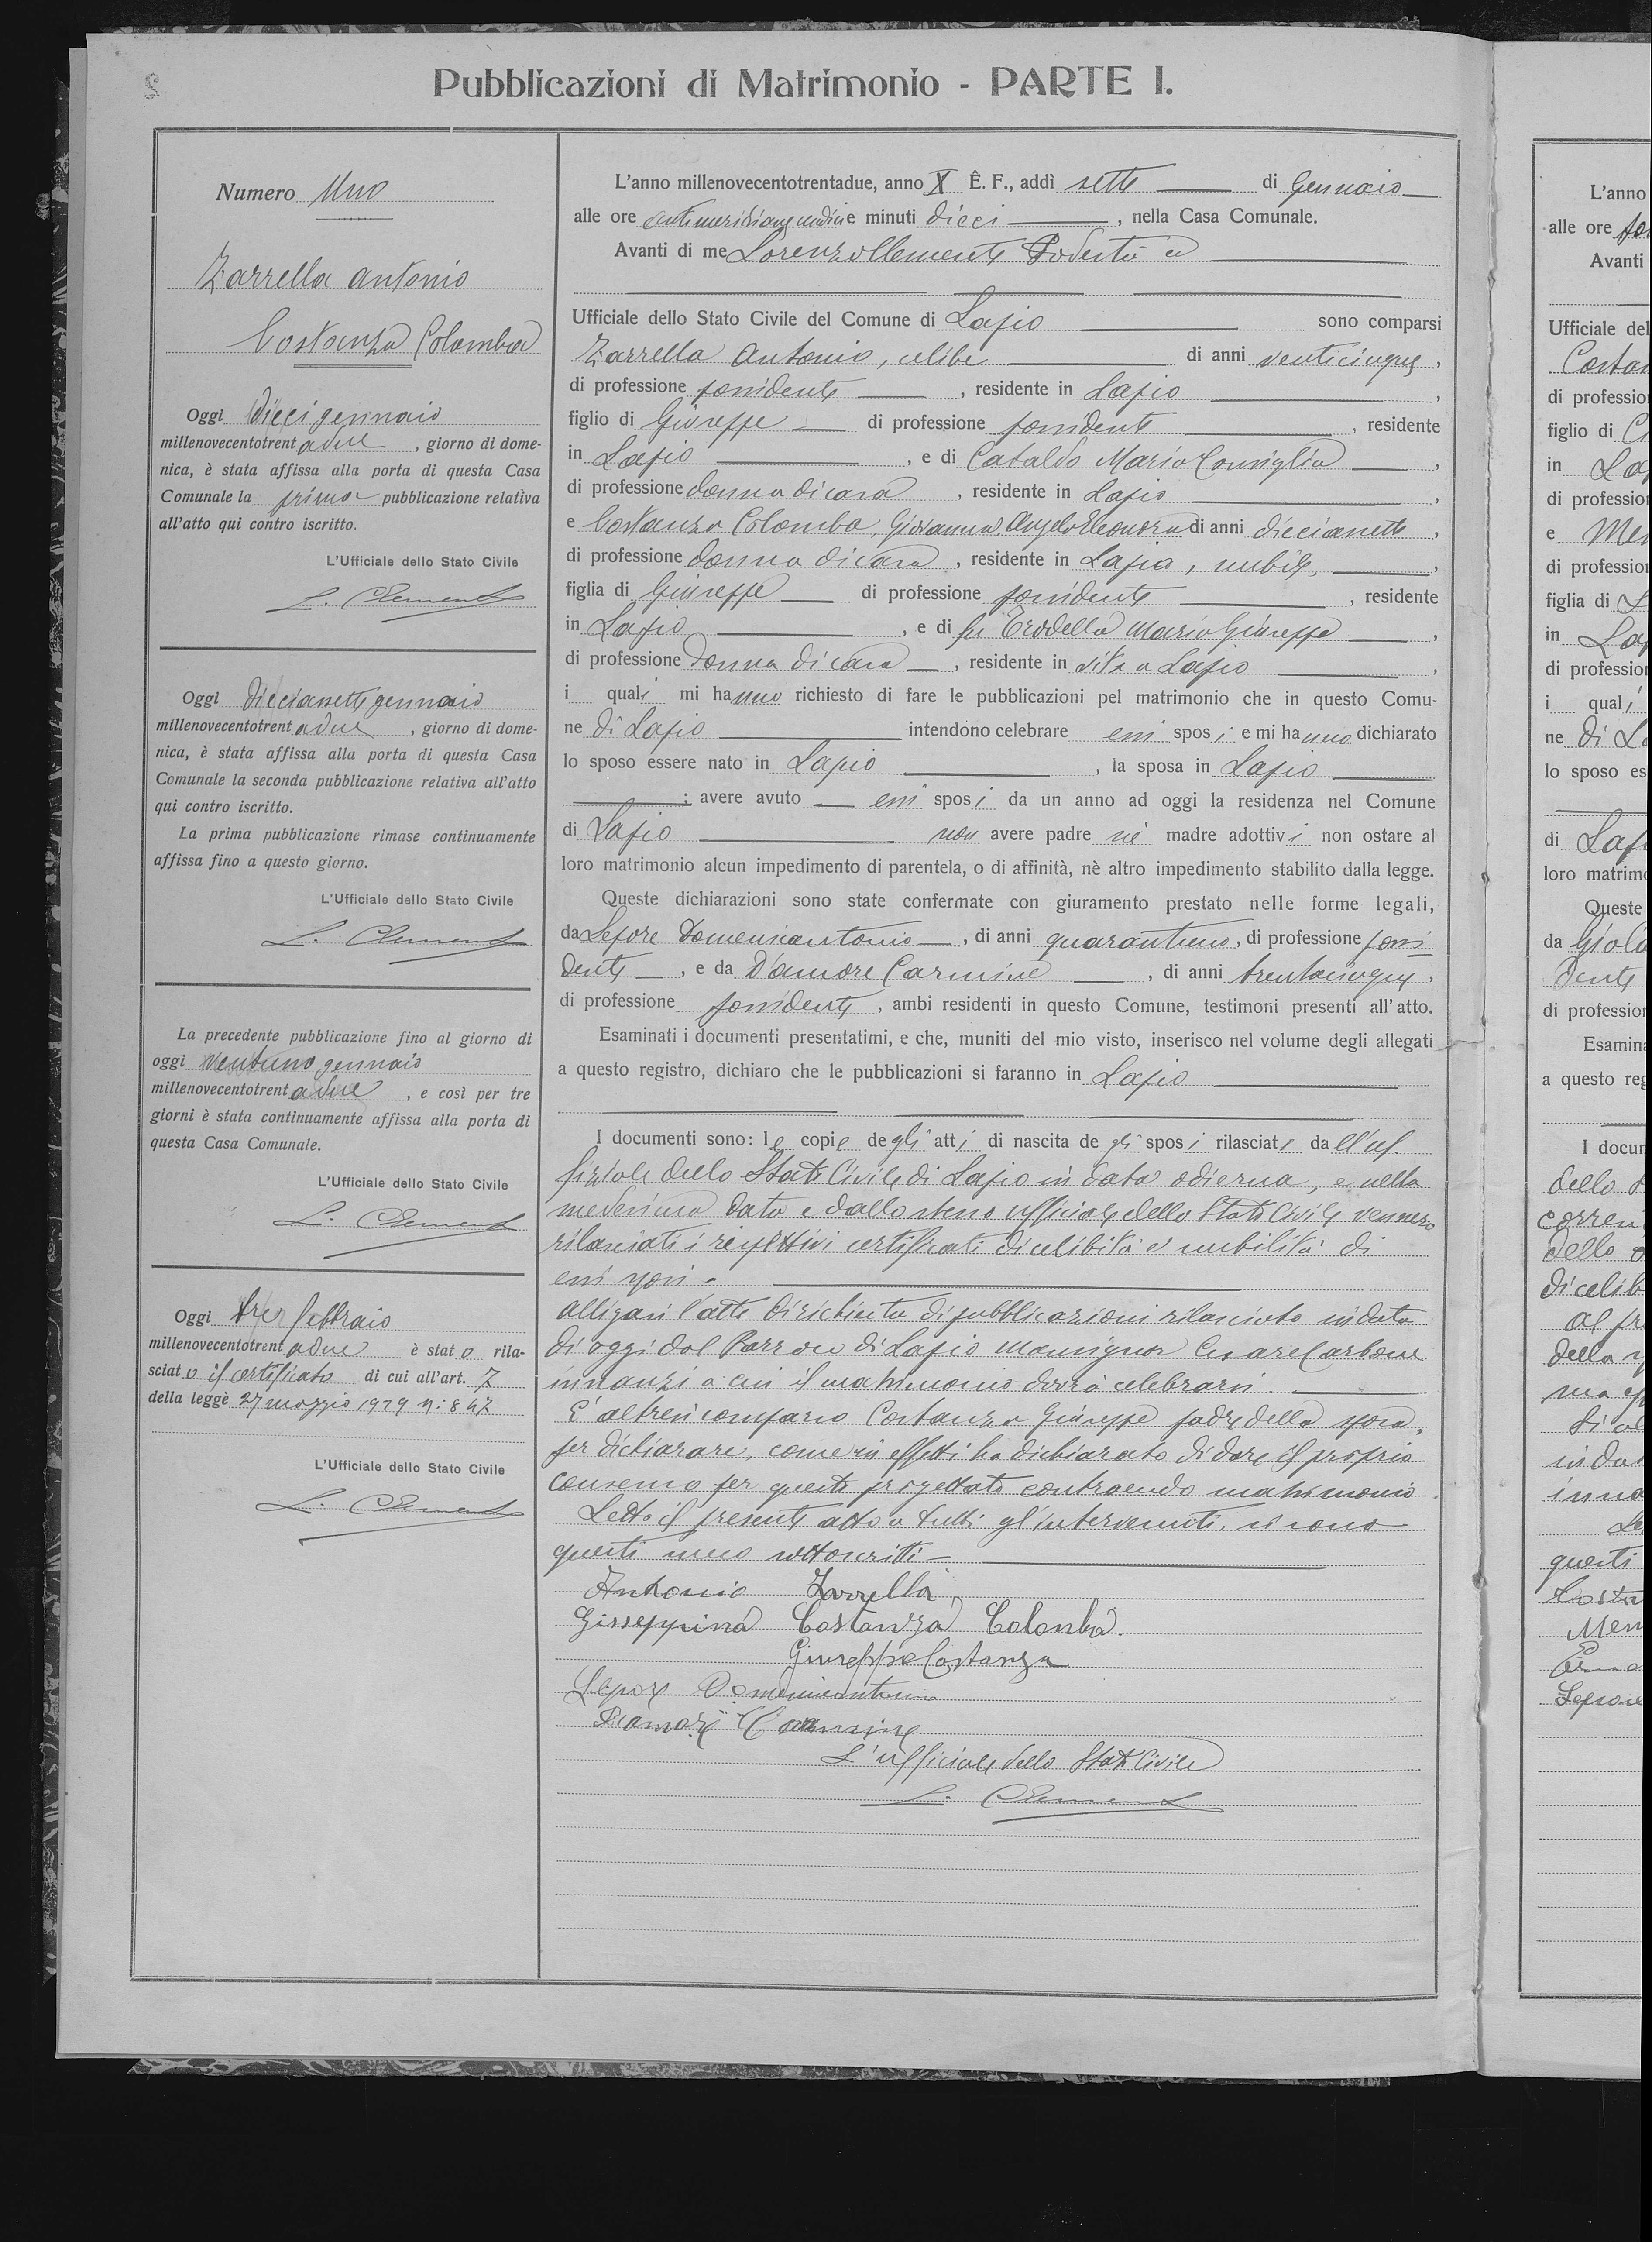 2
Pubblicazioni di Matrimonio - PARTE I.
Numero Uno
Zarrella Antonio
Costanza Colomba
Oggi Dieci gennaio
millenovecentotrent adue, giorno di dome-
nica, è stata affissa alla porta di questa Casa
Comunale la prima pubblicazione relativa
all'atto qui contro iscritto.
L'Ufficiale dello Stato Civile
L. Clemente
Oggi Diecianette gennaio
millenovecentotrent adue, giorno di dome-
nica, è stata affissa alla porta di questa Casa
Comunale la seconda pubblicazione relativa all'atto
qui contro iscritto.
La prima pubblicazione rimase continuamente
affissa fino a questo giorno.
L'Ufficiale dello Stato Civile
L. Clemente
La precedente pubblicazione fino al giorno di
oggi ventuno gennaio
millenovecentotrent adue, e così per tre
giorni è stata continuamente affissa alla porta di
questa Casa Comunale.
L'Ufficiale dello Stato Civile
L. Clemente
Oggi tre febbraio
millenovecentotrent adue è stat o rila-
sciat o il certificato di cui all'art. 7
della legge 27 maggio 1929 n: 847
L'Ufficiale dello Stato Civile
L. Clemente
L'anno millenovecentotrentadue, anno X E. F., addì sette di Gennaio
alle ore antimeridiane undici e minuti dieci, nella Casa Comunale.
Avanti di me Lorenzo Clemente Podestà ed
Ufficiale dello Stato Civile del Comune di Lapio sono comparsi
Zarrella Antonio, celibe di anni venticinque,
di professione possidente, residente in Lapio,
figlio di Giuseppe di professione possidente, residente
in Lapio, e di Cataldo Maria Consiglia,
di professione donna di casa, residente in Lapio,
e Costanza Colomba, Giovanna, Angela Eleonora di anni diecianette,
di professione donna di casa, residente in Lapio, nubile,
figlia di Giuseppe di professione possidente, residente
in Lapio, e di fu Trodella Maria Giuseppa,
di professione donna di casa, residente in vita a Lapio,
i quali mi hanno richiesto di fare le pubblicazioni pel matrimonio che in questo Comu-
ne di Lapio intendono celebrare essi sposi e mi hanno dichiarato
lo sposo essere nato in Lapio, la sposa in Lapio
; avere avuto essi sposi da un anno ad oggi la residenza nel Comune
di Lapio non avere padre nè madre adottivi non ostare al
loro matrimonio alcun impedimento di parentela, o di affinità, nè altro impedimento stabilito dalla legge.
Queste dichiarazioni sono state confermate con giuramento prestato nelle forme legali,
da Lepore Domenicantonio, di anni quarantuno, di professione possi
dente, e da D'amore Carmine, di anni trentacinque,
di professione possidente, ambi residenti in questo Comune, testimoni presenti all'atto.
Esaminati i documenti presentatimi, e che, muniti del mio visto, inserisco nel volume degli allegati
a questo registro, dichiaro che le pubblicazioni si faranno in Lapio
I documenti sono: le copie degli atti di nascita degli sposi rilasciate dall'uf
ficiale dello Stato Civile di Lapio in data odierna, e nella
medesima data e dallo stesso ufficiale dello Stato Civile vennero
rilasciati i respettivi certificati di celibità e nubilità di
essi sposi.
Allegasi l'atto di richiesta di pubblicazioni rilasciato in data
di oggi dal Parroco di Lapio Monsignor Cesare Carbone
innanzi a cui il matrimonio dovrà celebrarsi.
E' altresì comparso Costanza Giuseppe padre della sposa,
per dichiarare, come in effetti ha dichiarato di dare il proprio
consenso per questo progettato contraendo matrimonio
Letto il presente atto a tutti gl'intervenuti, si sono
questi meco sottoscritti
Antonio Zarrella
Giuseppina Costanza Colomba.
Giuseppe Costanza
Lepore Domenicantonio
Damore Carmine
L'ufficiale dello Stato Civile
L. Clemente
L'anno
alle ore
Avanti
Ufficiale del
Costan
di professio
figlio di
in Lap
di professio
e Men
di professio
figlia di
in Lap
di professio
i quali
ne di L
lo sposo es
di Lap
loro matrim
Queste
da Giol
dente
di professio
Esamin
a questo reg
I docum
dello
corren
dello
di celib
al pr
della
in da
inna
questi
Costa
Men
Lepore